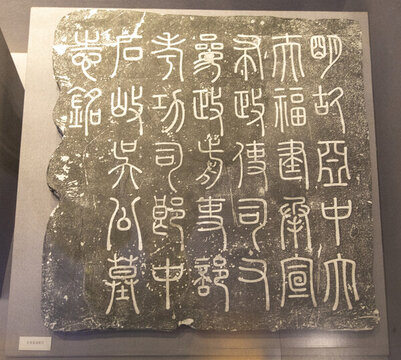 明故亞中大
夫福建承宣
布政使司右
參政前吏部
考功司郎中
石岐吳公墓
志銘